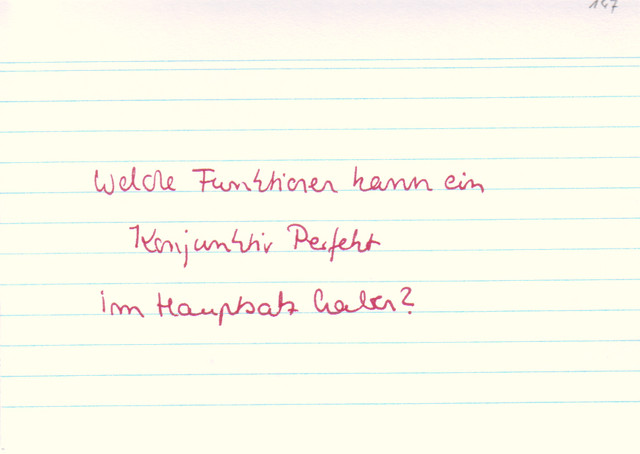 147
Welche Funktionen kann ein
Konjunktiv Perfekt
im Hauptsatz haben?